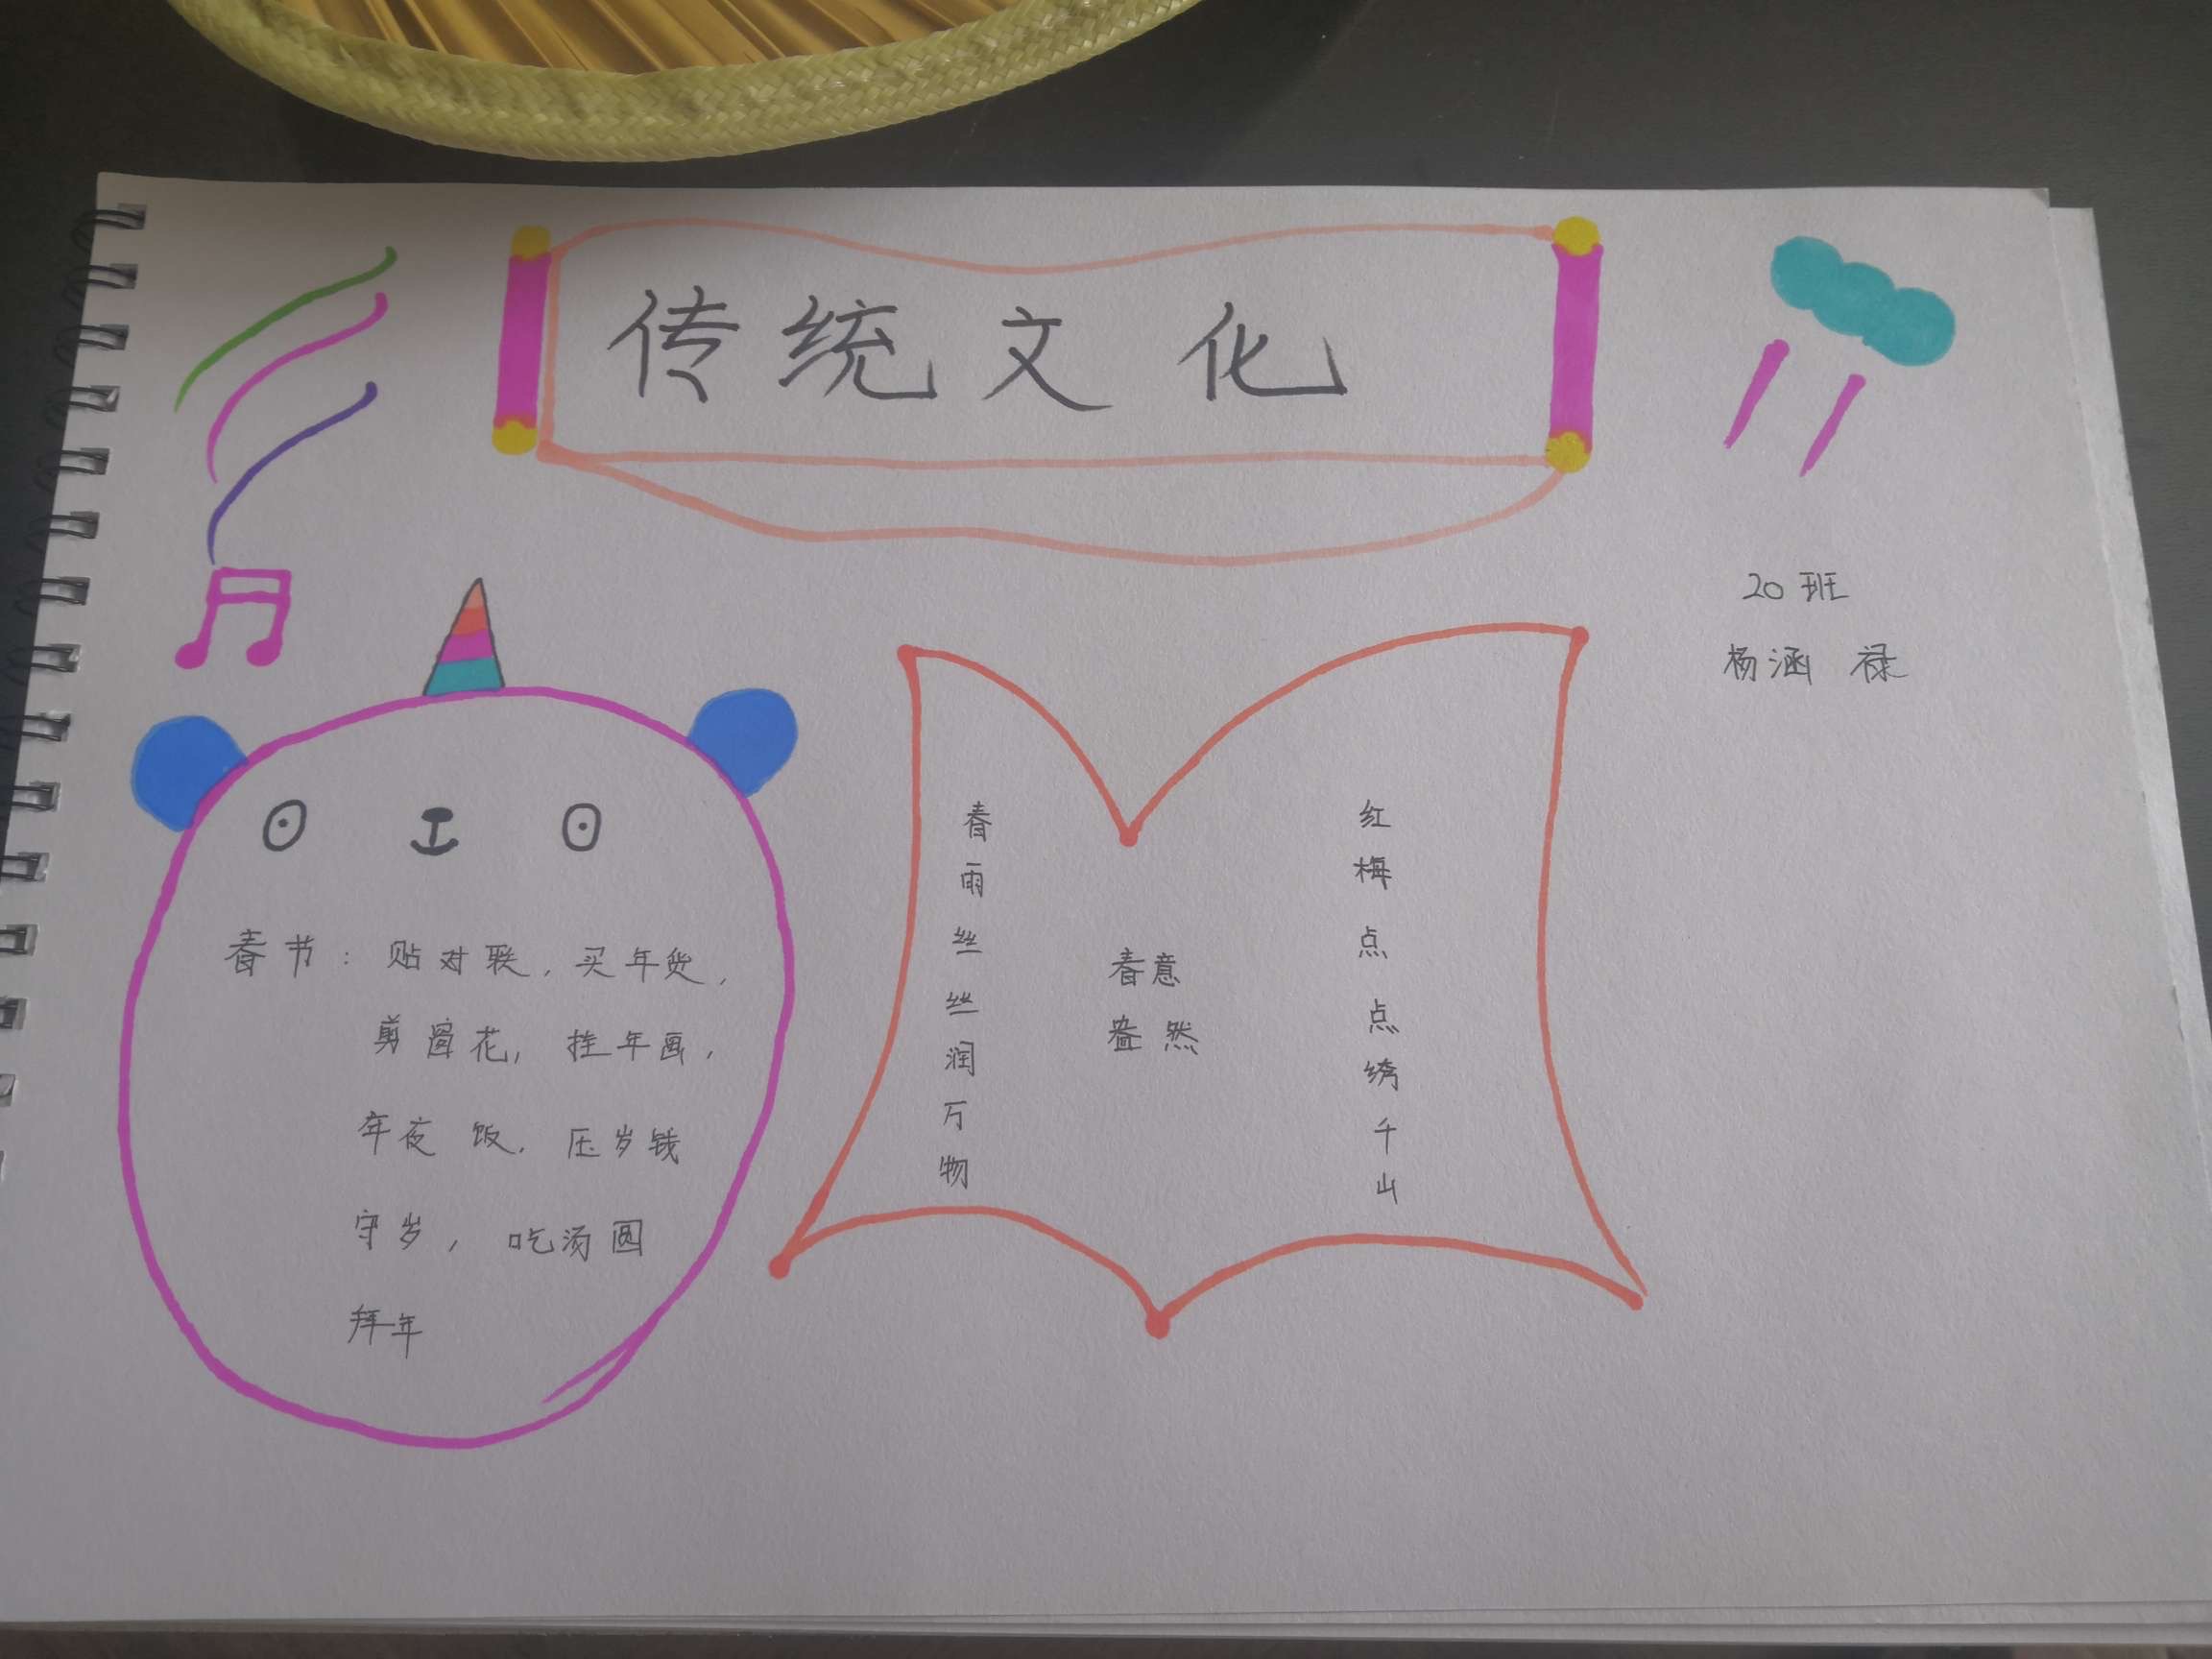 传统文化
20班
杨涵禄
春节：贴对联，买年货，
剪窗花，挂年画，
年夜饭，压岁钱
守岁，吃汤圆
拜年
春雨丝丝润万物
春意
盎然
红梅点点绣千山